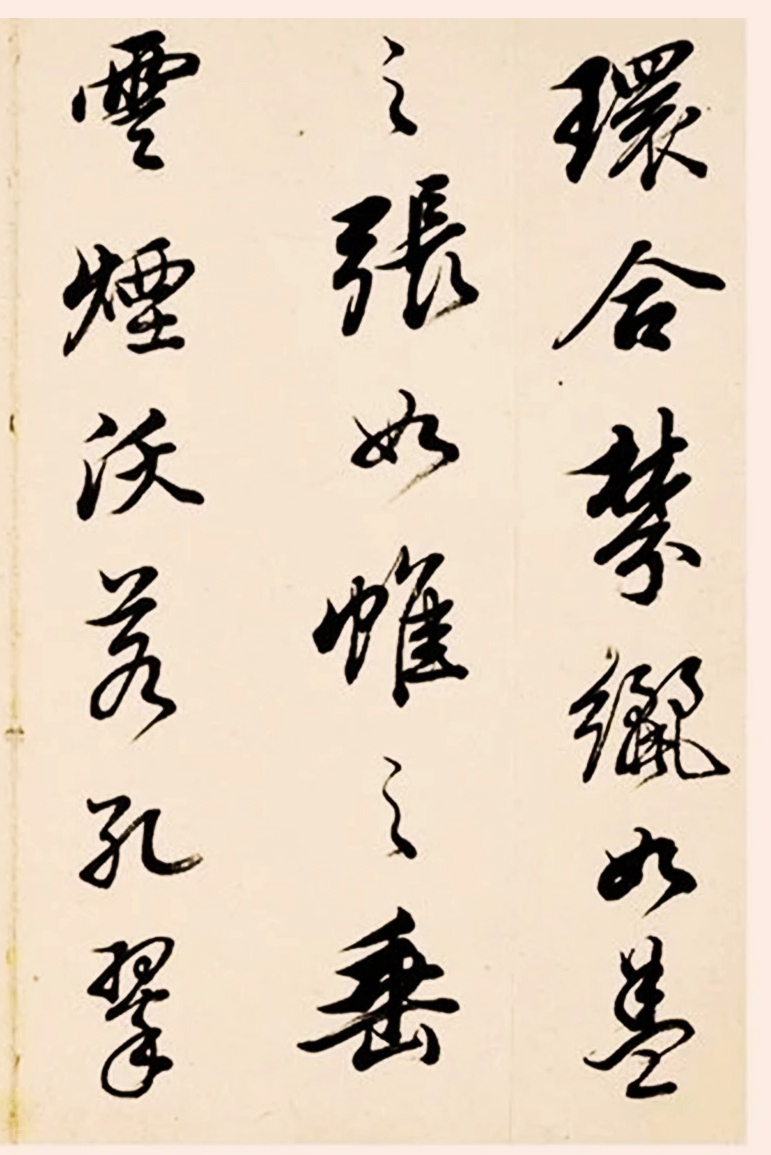 環合棼纚如蓋
之張如帷之垂
雲煙沃若孔翠